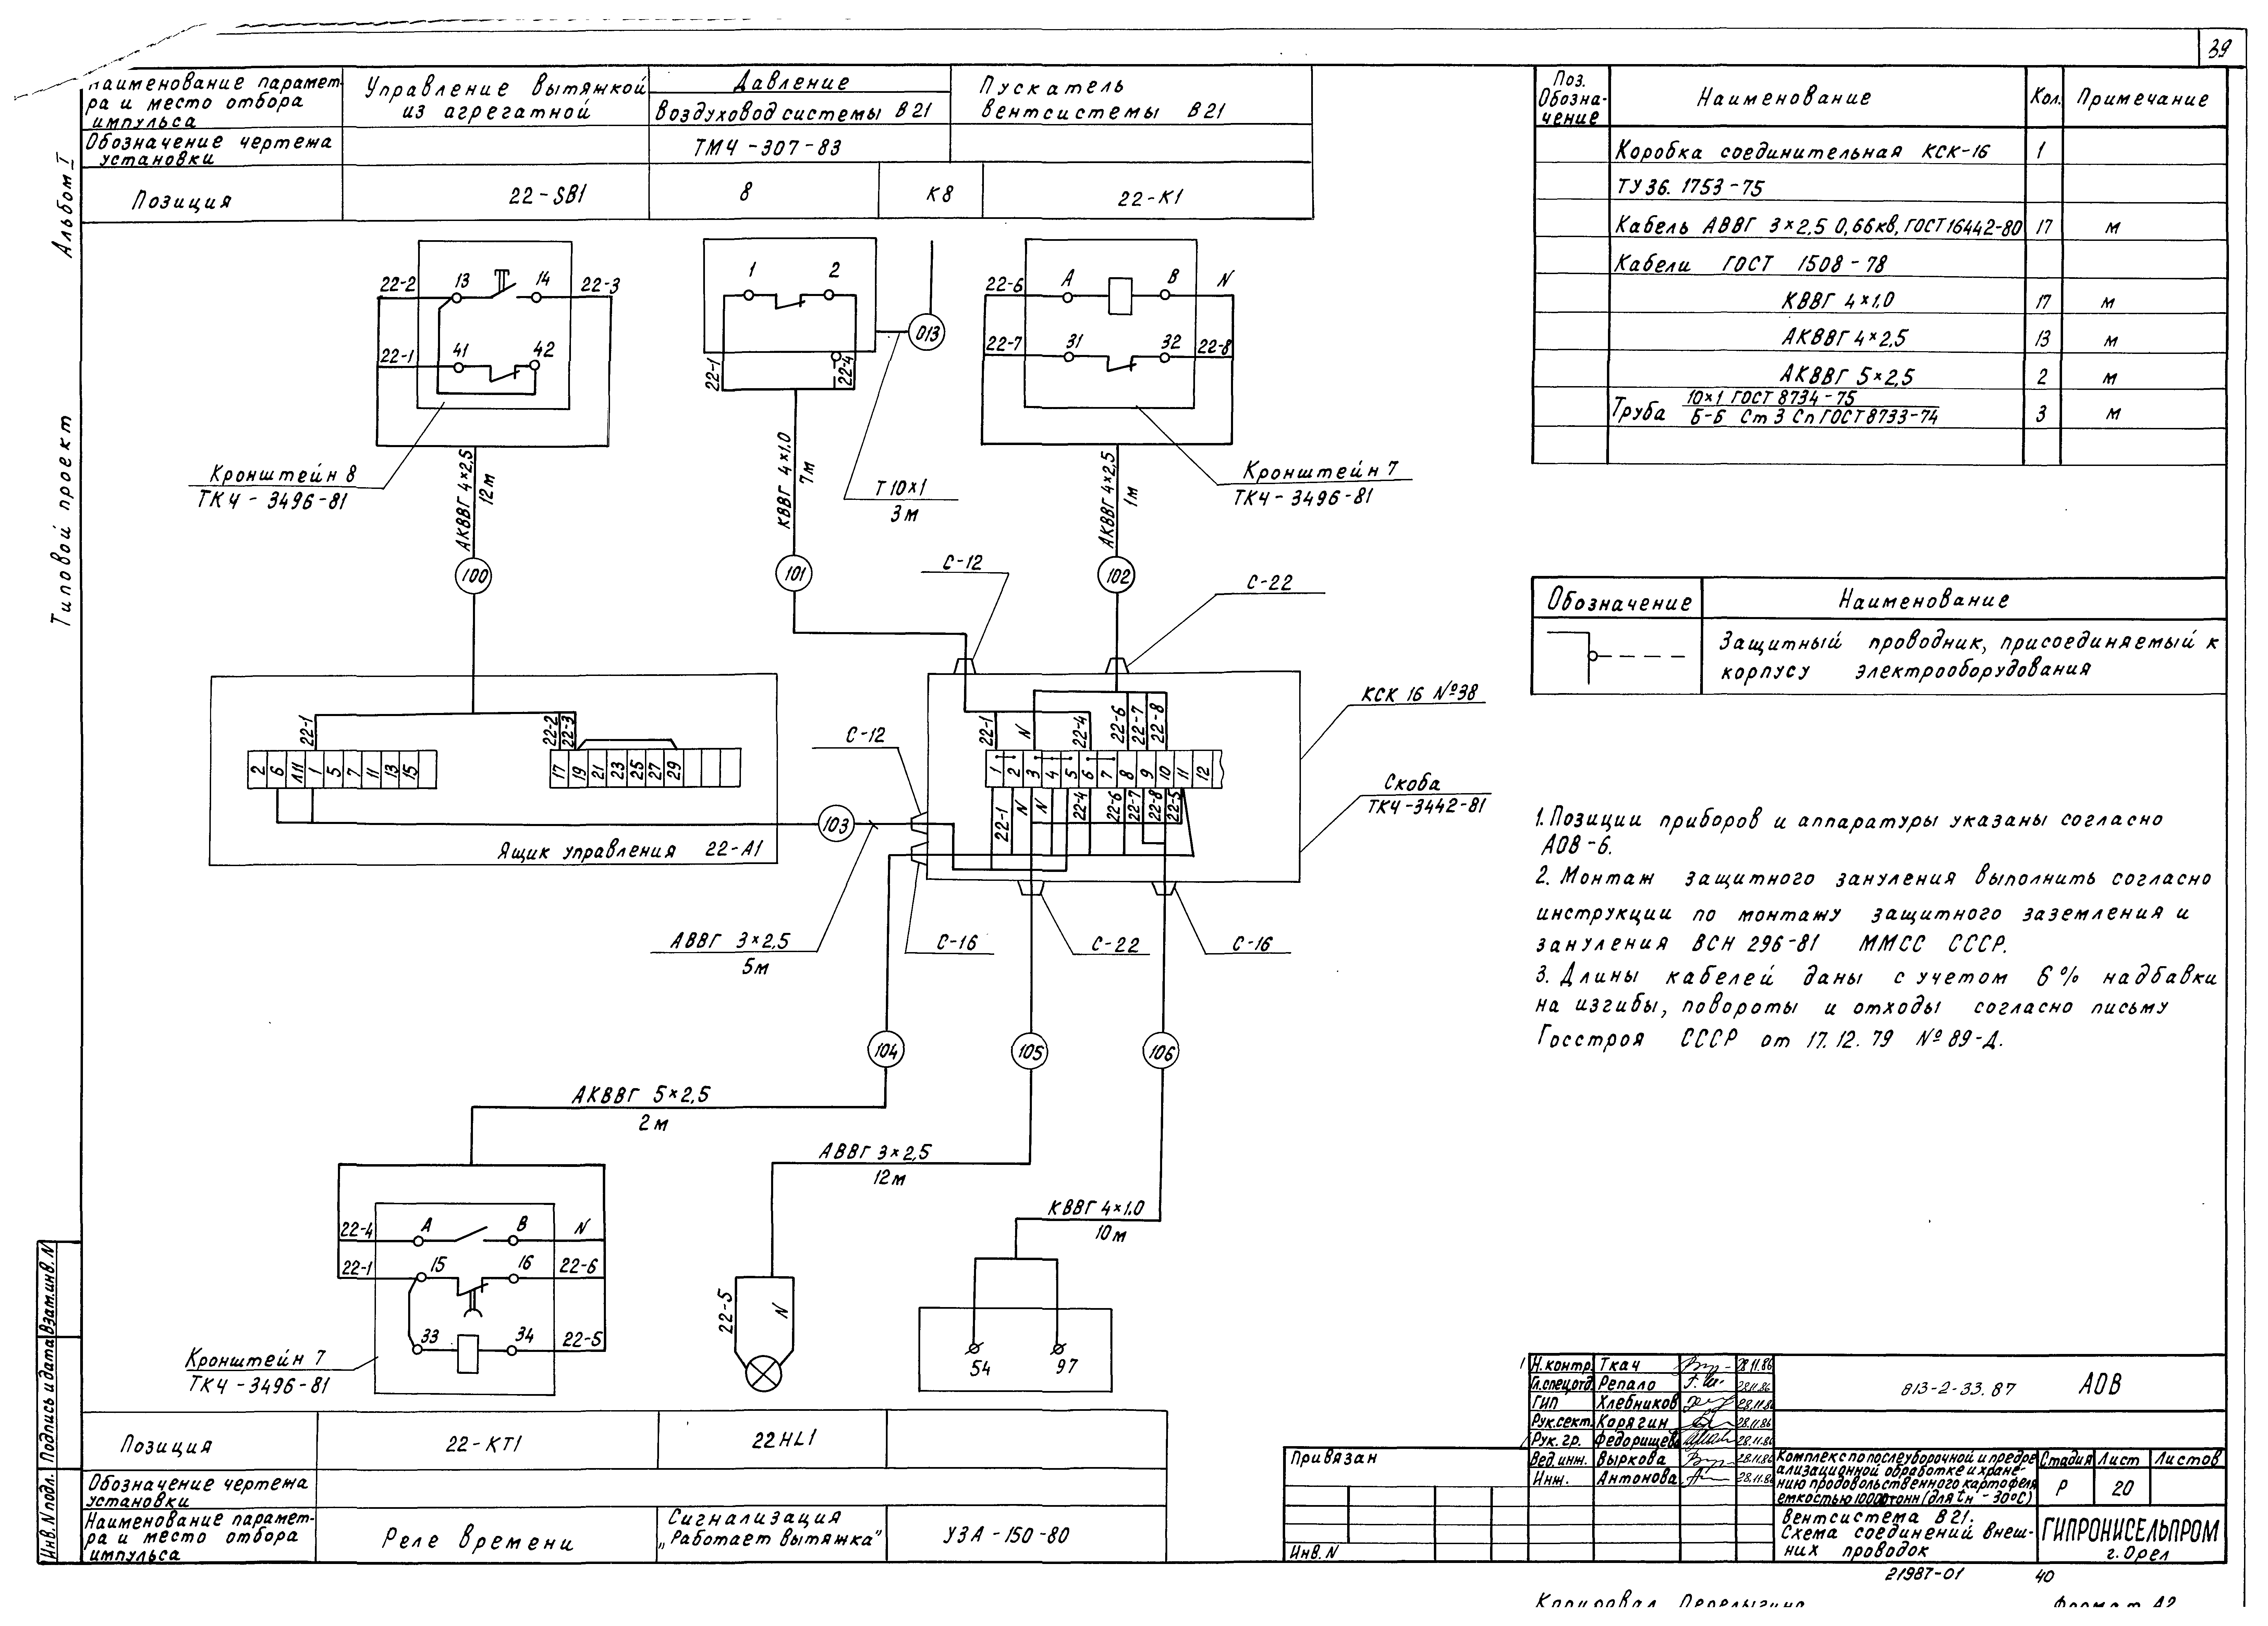 39
Альбом I
Типовой проект
Наименование парамет-
ра и место отбора
импульса
Управление вытяжкой
из агрегатной
Давление
воздуховод системы В21
Пускатель
вентсистемы В21
Обозначение чертежа
установки
ТМЧ-307-83
Позиция
22-SB1
8
К8
22-К1
Поз.
Обозна-
чение
Наименование
Кол.
Примечание
Коробка соединительная КСК-16
1
ТУ 36. 1753-75
Кабель АВВГ 3×2,5 0,66кв, ГОСТ 16442-80
17
м
Кабели ГОСТ 1508-78
КВВГ 4×1,0
17
м
АКВВГ 4×2,5
13
м
АКВВГ 5×2,5
2
м
Труба 10×1 ГОСТ 8734-75
Б-Б Ст 3 Сп ГОСТ 8733-74
3
м
22-2
13
14
22-3
22-1
41
42
1
2
22-1
22-4
013
22-6
А
В
N
22-7
31
32
22-8
Кронштейн 8
ТКЧ-3496-81
АКВВГ 4×2,5
12м
КВВГ 4×1,0
7м
Т10×1
3м
АКВВГ 4×2,5
1м
Кронштейн 7
ТКЧ-3496-81
100
101
102
С-12
С-22
Обозначение
Наименование
Защитный проводник, присоединяемый к
корпусу электрооборудования
22-1
22-2
22-3
2
6
Л11
1
5
7
11
13
15
17
19
21
23
25
27
29
Ящик управления 22-А1
103
С-12
22-1
N
22-4
22-6
22-7
22-8
1
2
3
4
5
6
7
8
9
10
11
12
22-1
N
N
22-4
22-6
22-7
22-8
22-5
КСК 16 №38
Скоба
ТКЧ-3442-81
АВВГ 3×2,5
5м
С-16
С-22
С-16
1. Позиции приборов и аппаратуры указаны согласно
АОВ-6.
2. Монтаж защитного зануления выполнить согласно
инструкции по монтажу защитного заземления и
зануления ВСН 296-81 ММСС СССР.
3. Длины кабелей даны с учетом 6% надбавки
на изгибы, повороты и отходы согласно письму
Госстроя СССР от 17.12.79 №89-Д.
104
105
106
АКВВГ 5×2,5
2м
АВВГ 3×2,5
12м
КВВГ 4×1,0
10м
22-4
А
В
N
22-1
15
16
22-6
33
34
22-5
Кронштейн 7
ТКЧ-3496-81
22-5
N
54
97
Позиция
22-КТ1
22HL1
Обозначение чертежа
установки
Наименование парамет-
ра и место отбора
импульса
Реле времени
Сигнализация
„Работает вытяжка"
УЗА-150-80
Взам.инв.N
Подпись и дата
Инв.N подл.
Привязан
Инв.N
Н.контр. Ткач 28.11.86
Гл.спец.отд. Репало 28.11.86
ГИП Хлебников 28.11.86
Рук.сект. Корягин 28.11.86
Рук. гр. Федорищева 28.11.86
Вед.инж. Выркова 28.11.86
Инж. Антонова 28.11.86
813-2-33.87
АОВ
Комплекс по послеуборочной и предре-
ализационной обработке и хране-
нию продовольственного картофеля
емкостью 10000тонн (для tн -30°С)
Стадия
Лист
Листов
Р
20
Вентсистема В21.
Схема соединений внеш-
них проводок
ГИПРОНИСЕЛЬПРОМ
г. Орел
21987-01
40
Копировал Перелыгина
Формат А2